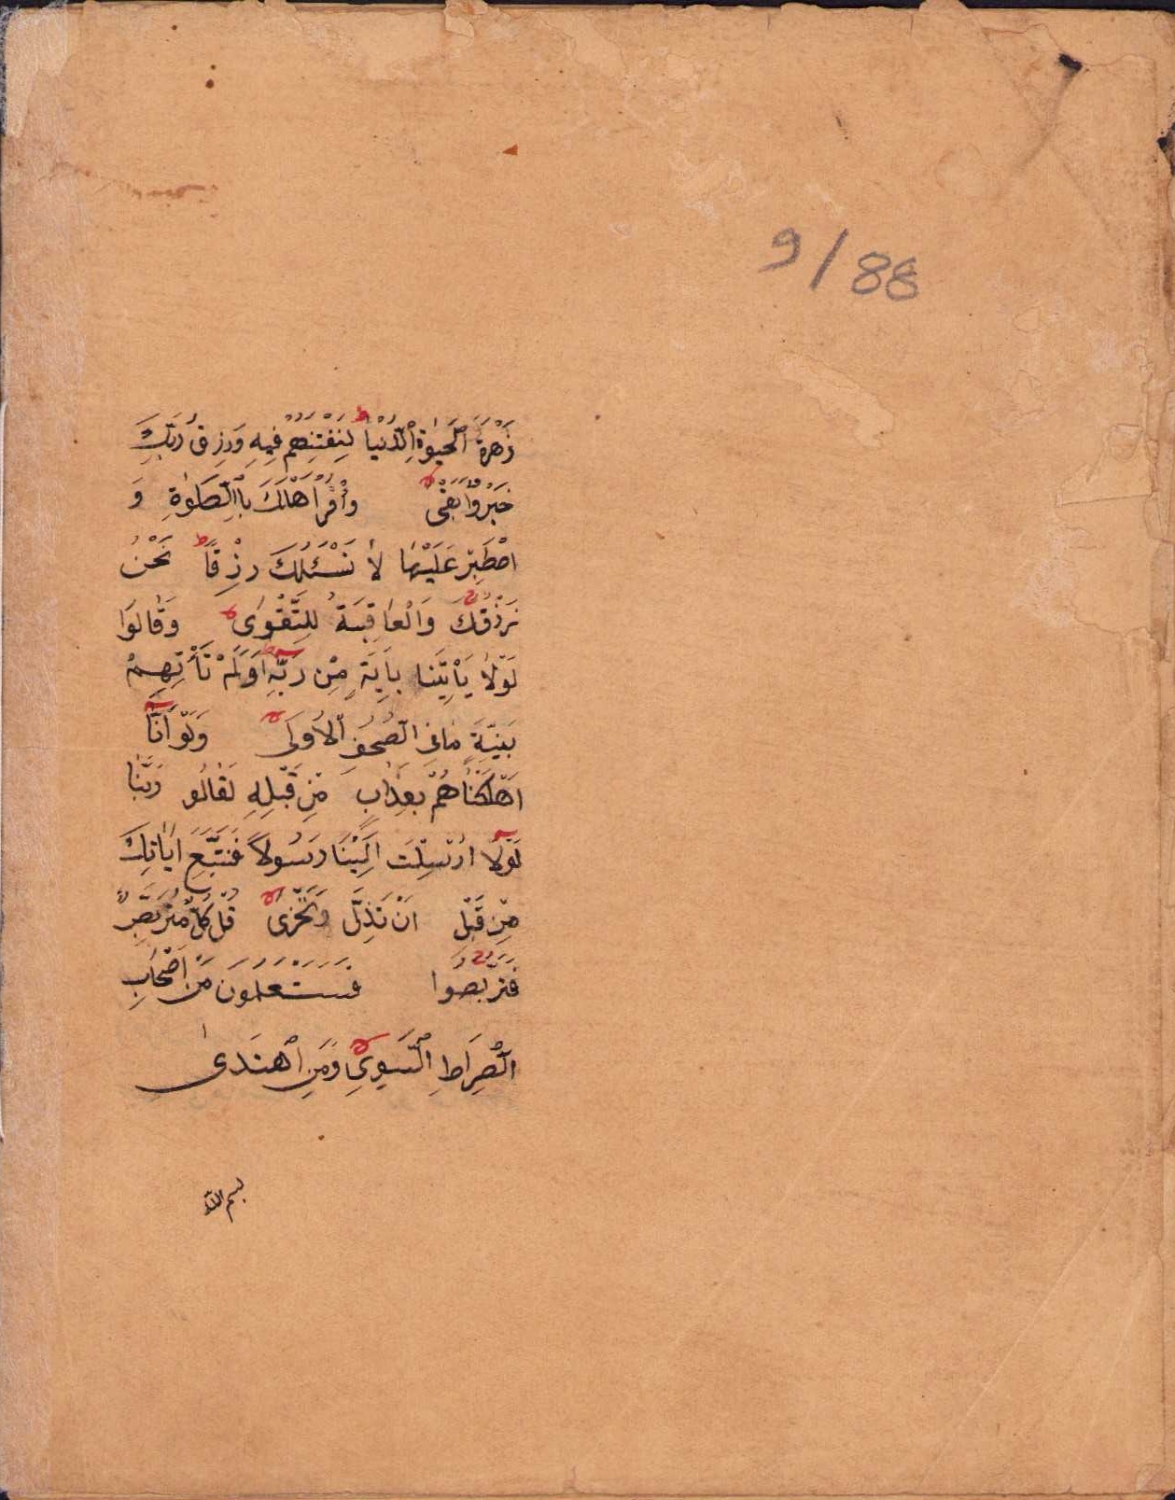 9/88
زَهْرَةَ الْحَيٰوةِ الدُّنْيَا لِنَفْتِنَهُمْ فِيهِ وَرِزْقُ رَبِّكَ
خَيْرٌ وَاَبْقٰى وَأْمُرْ اَهْلَكَ بِالصَّلٰوةِ وَ
اصْطَبِرْ عَلَيْهَا لَا نَسْـَٔلُكَ رِزْقًا نَحْنُ
نَرْزُقُكَ وَالْعَاقِبَةُ لِلتَّقْوٰى وَقَالُوا
لَوْلَا يَأْتِينَا بِاٰيَةٍ مِنْ رَبِّهِ اَوَلَمْ تَأْتِهِمْ
بَيِّنَةُ مَا فِي الصُّحُفِ الْاُولٰى وَلَوْ اَنَّا
اَهْلَكْنَاهُمْ بِعَذَابٍ مِنْ قَبْلِهِ لَقَالُو رَبَّنَا
لَوْلَا اَرْسَلْتَ اِلَيْنَا رَسُولًا فَنَتَّبِعَ اٰيَاتِكَ
مِنْ قَبْلِ اَنْ نَذِلَّ وَنَخْزٰى قُلْ كُلٌّ مُتَرَبِّصٌ
فَتَرَبَّصُوا فَسَتَعْلَمُونَ مَنْ اَصْحَابُ
الصِّرَاطِ السَّوِيِّ وَمَنِ اهْتَدٰى
بسم الله